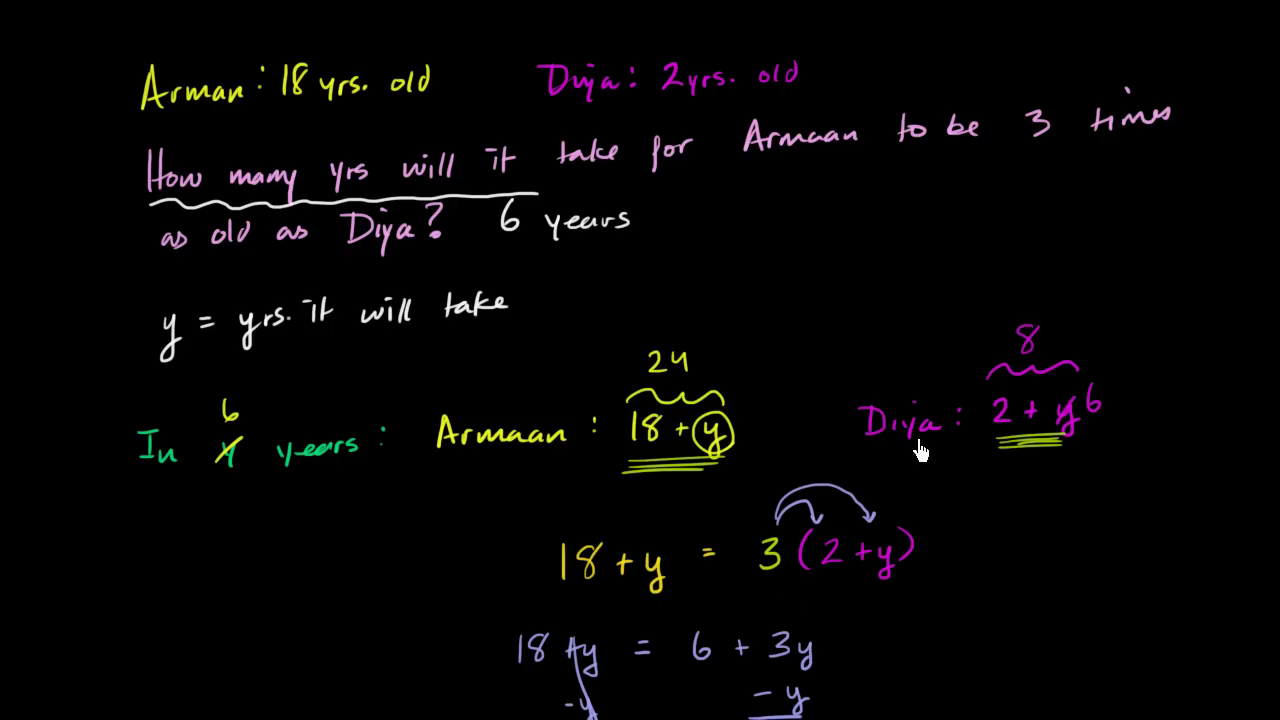 Arman: 18 yrs. old Diya: 2 yrs. old
How many yrs will it take for Armaan to be 3 times
as old as Diya? 6 years
y = yrs. it will take
24 8
6
In y years: Armaan: 18 + y Diya: 2 + y 6
18 + y = 3 (2 + y)
18 + y = 6 + 3y
- y - y